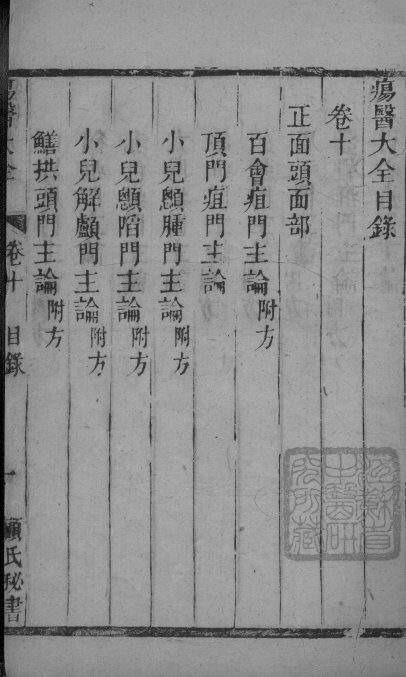 瘍醫大全目錄
卷十
正面頭面部
百會疽門主論附方
頂門疽門主論
小兒顖腫門主論附方
小兒顖陷門主論附方
小兒解顱門主論附方
鱔拱頭門主論附方
瘍醫大全 卷十 目錄 一 顧氏秘書
江蘇省中醫研究所藏